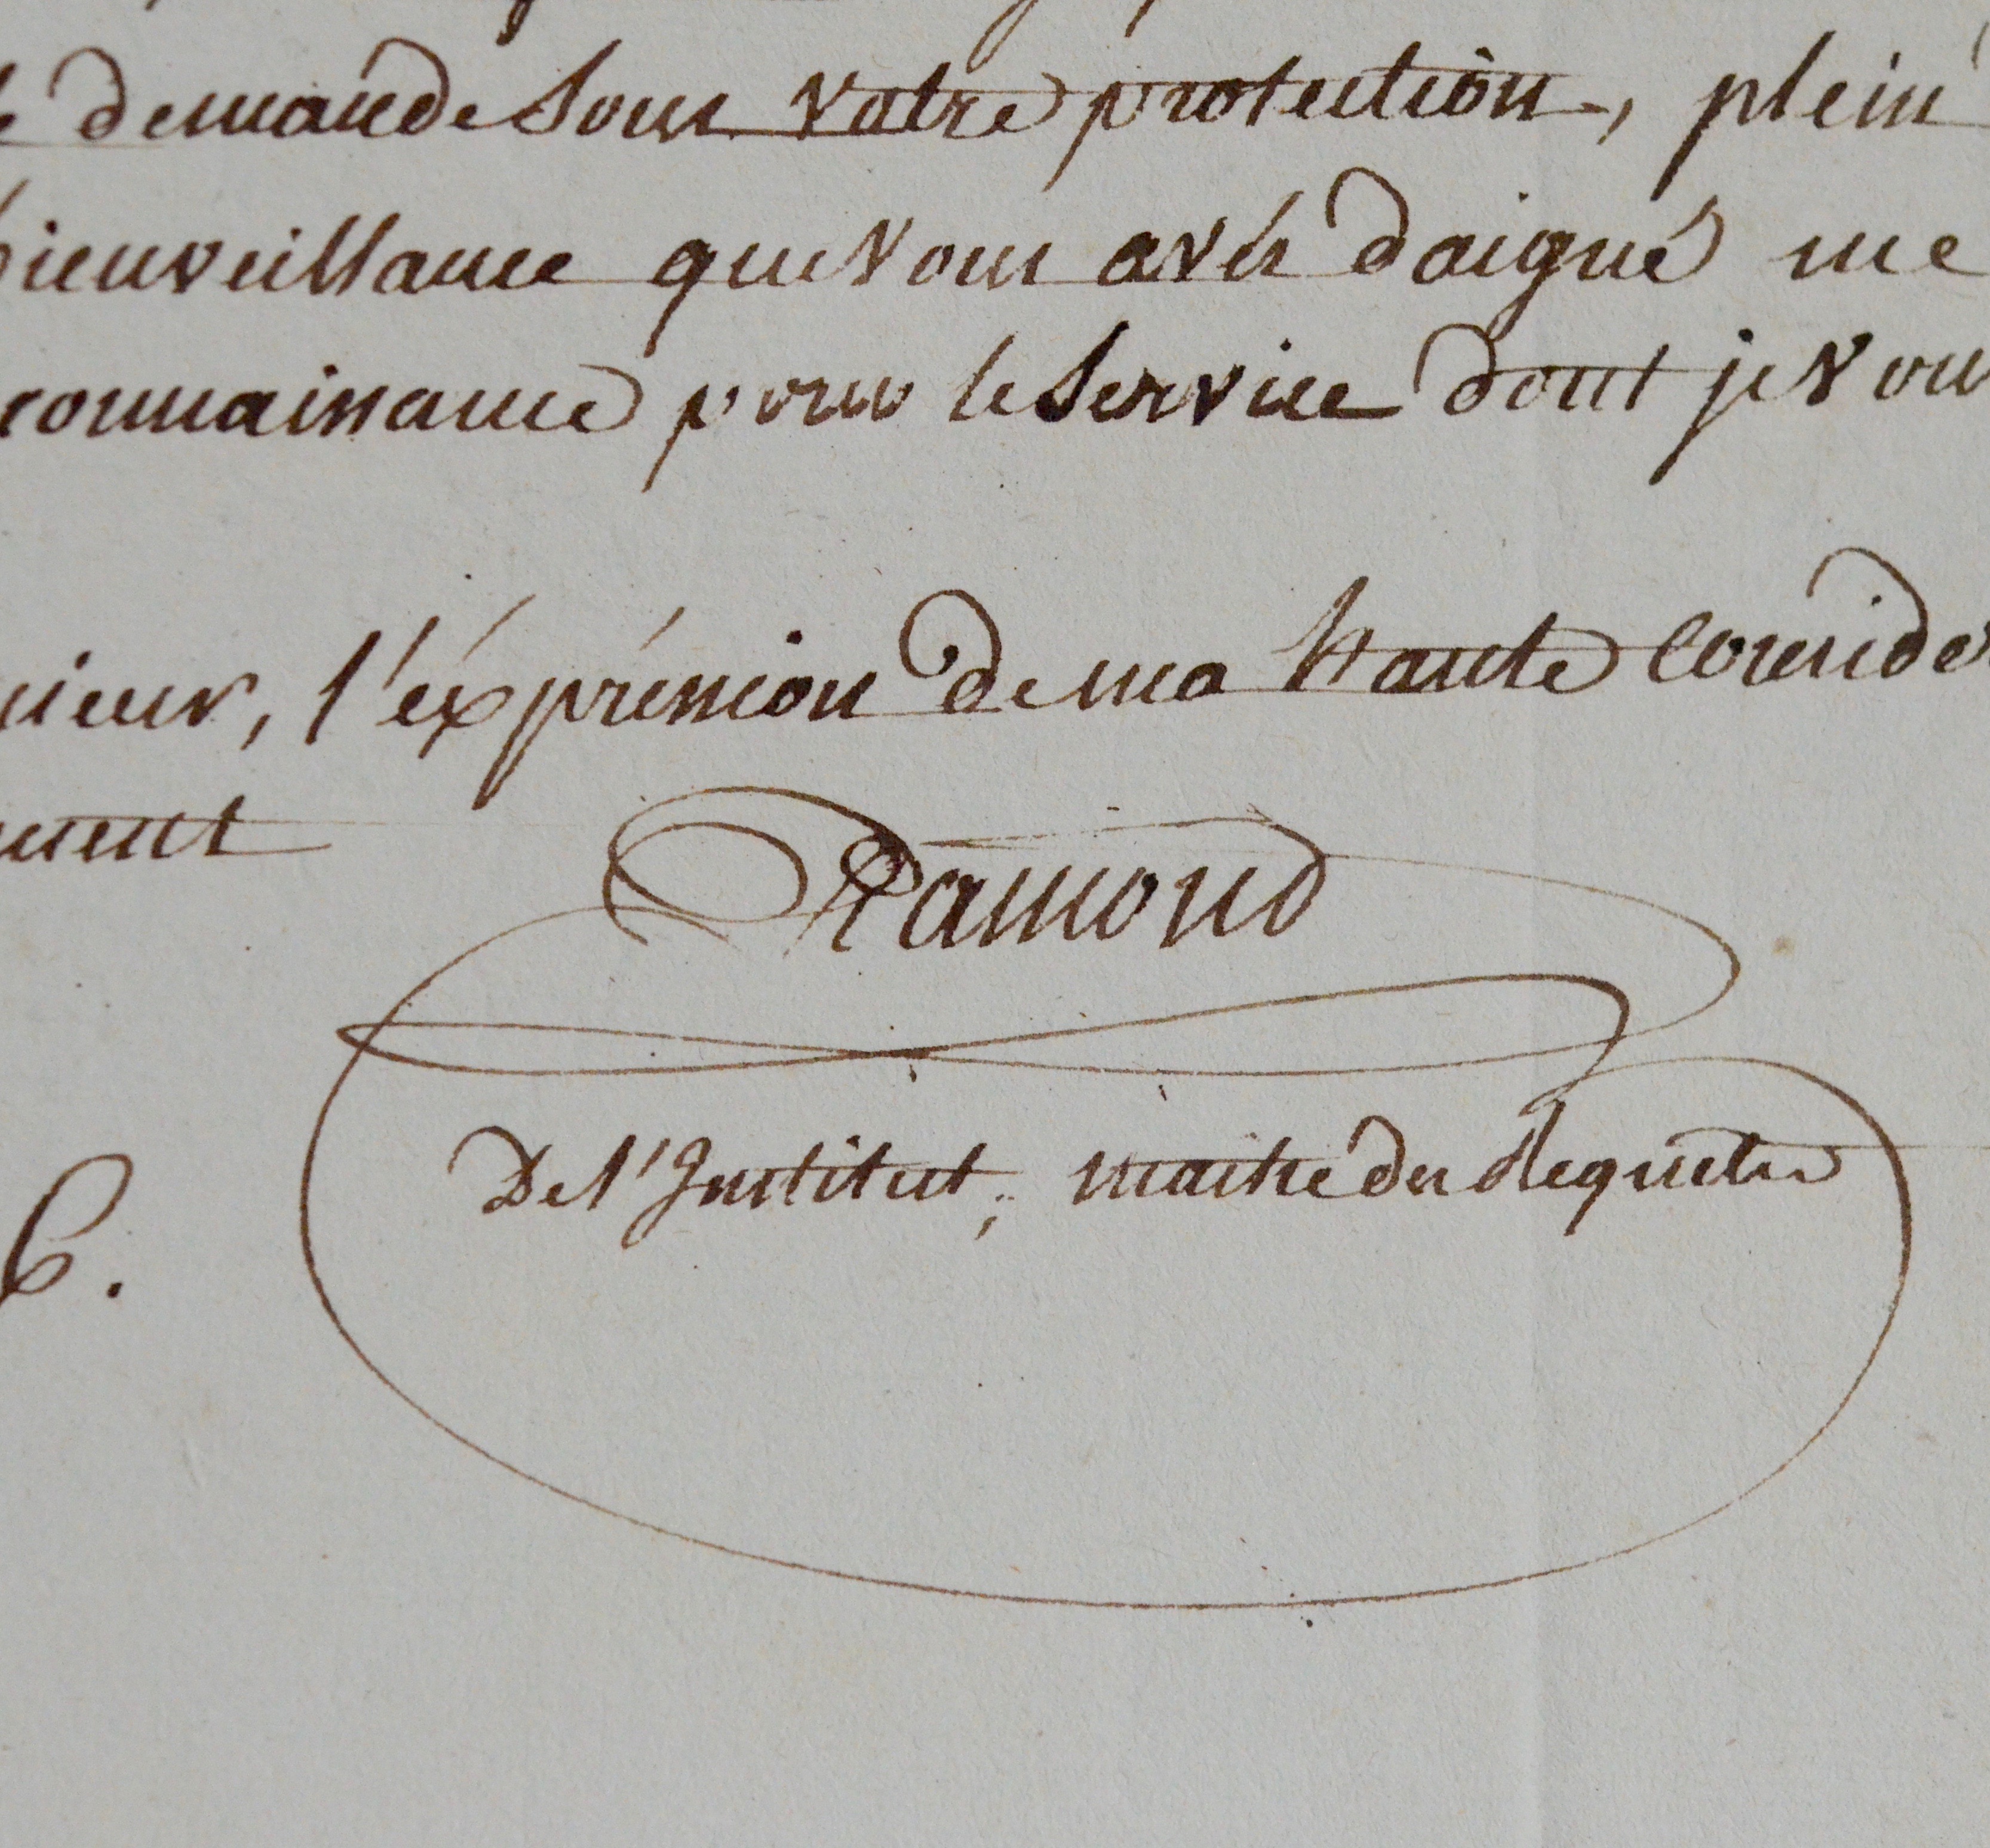 demande sous votre protection, plein
bienveillance que vous avés daigné me
connaissance pour le service dont je vou
sieur, l'éxpréssion de ma haute conside
ment
Ramond
De l'Institut, maitre des Requetes
6.